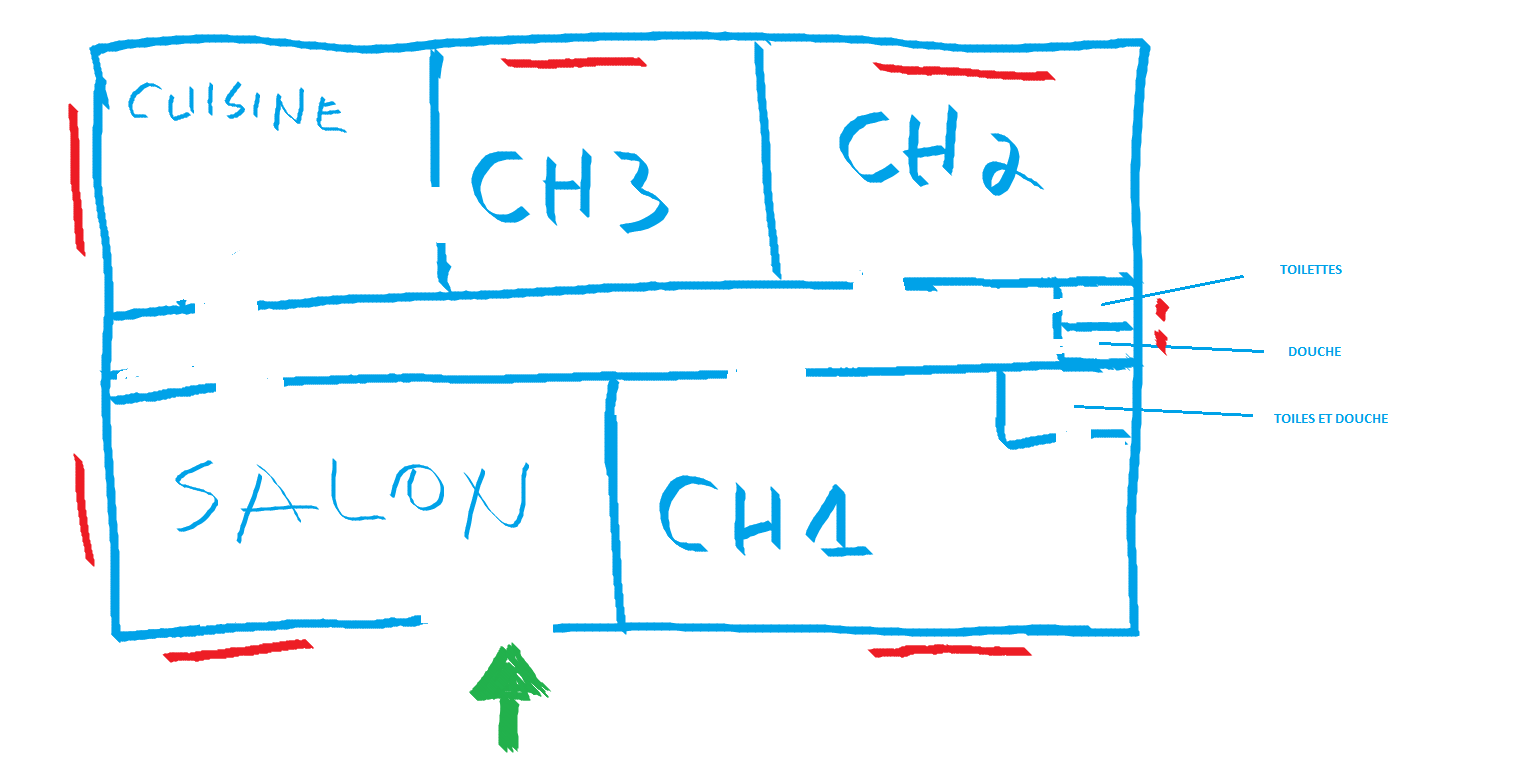 CUISINE
CH3
CH2
TOILETTES
DOUCHE
TOILES ET DOUCHE
SALON
CH1